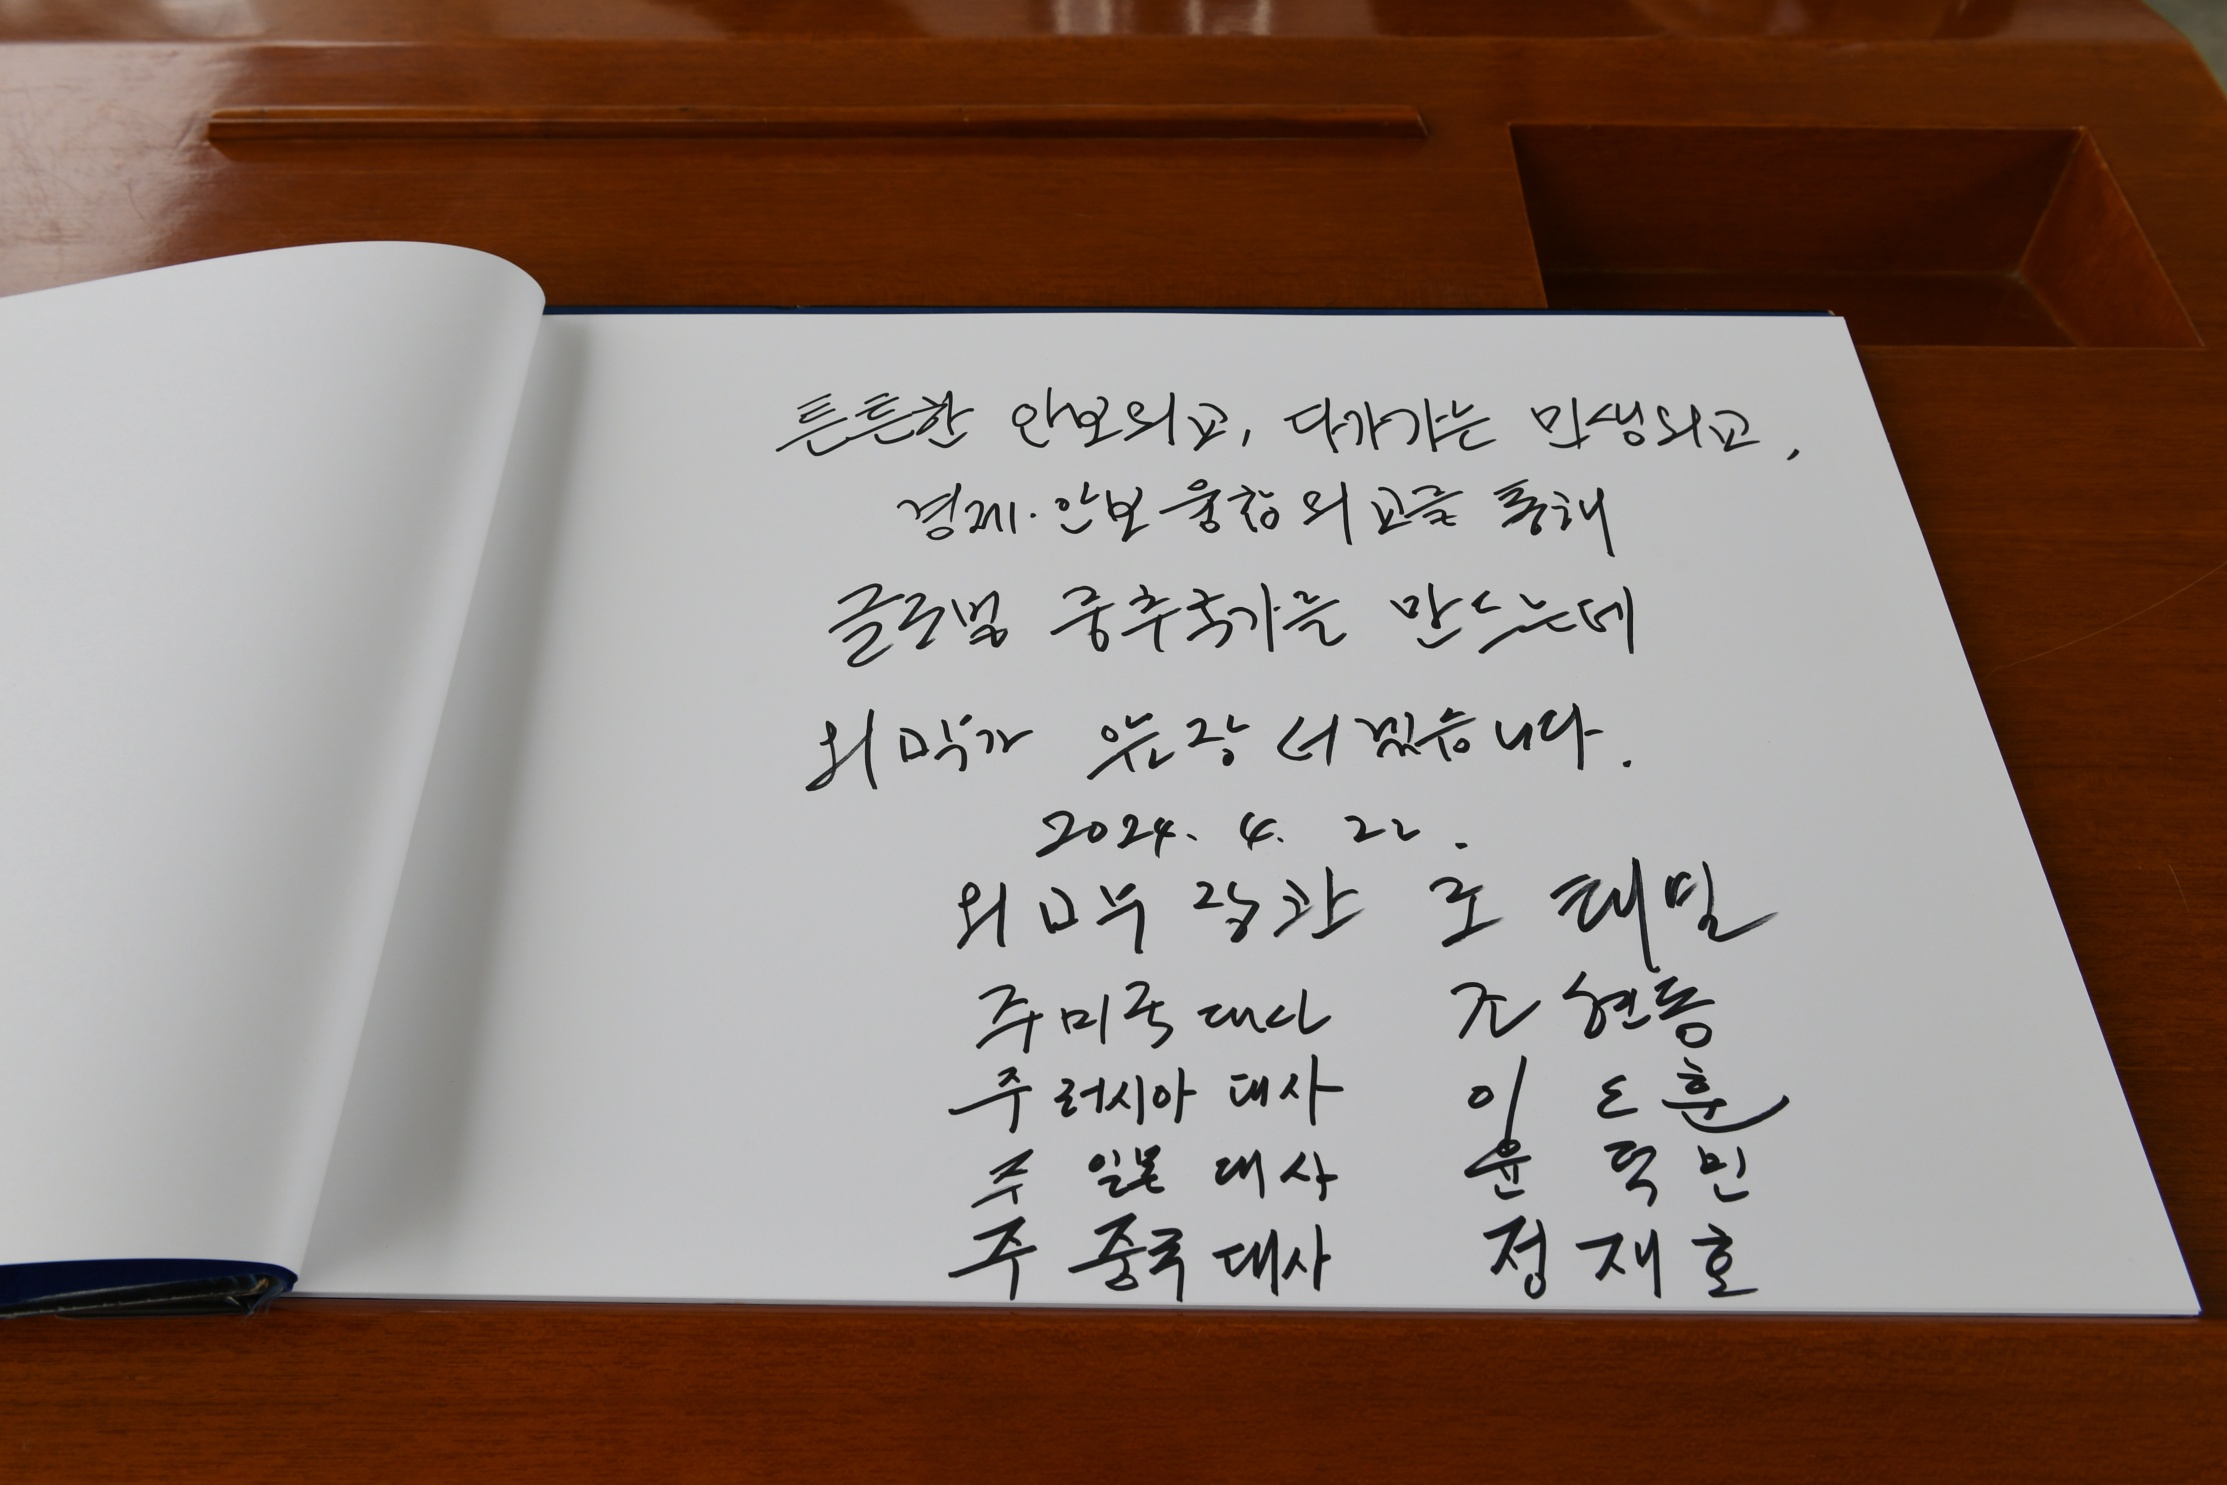 튼튼한 안보외교, 다가가는 민생외교,
경제·안보 융합외교를 통해
글로벌 중추국가를 만드는데
외교부가 앞장서겠습니다.
2024. 4. 22.
외교부 장관 조태열
주미국대사 조현동
주러시아 대사 이도훈
주 일본 대사 윤덕민
주 중국대사 정재호